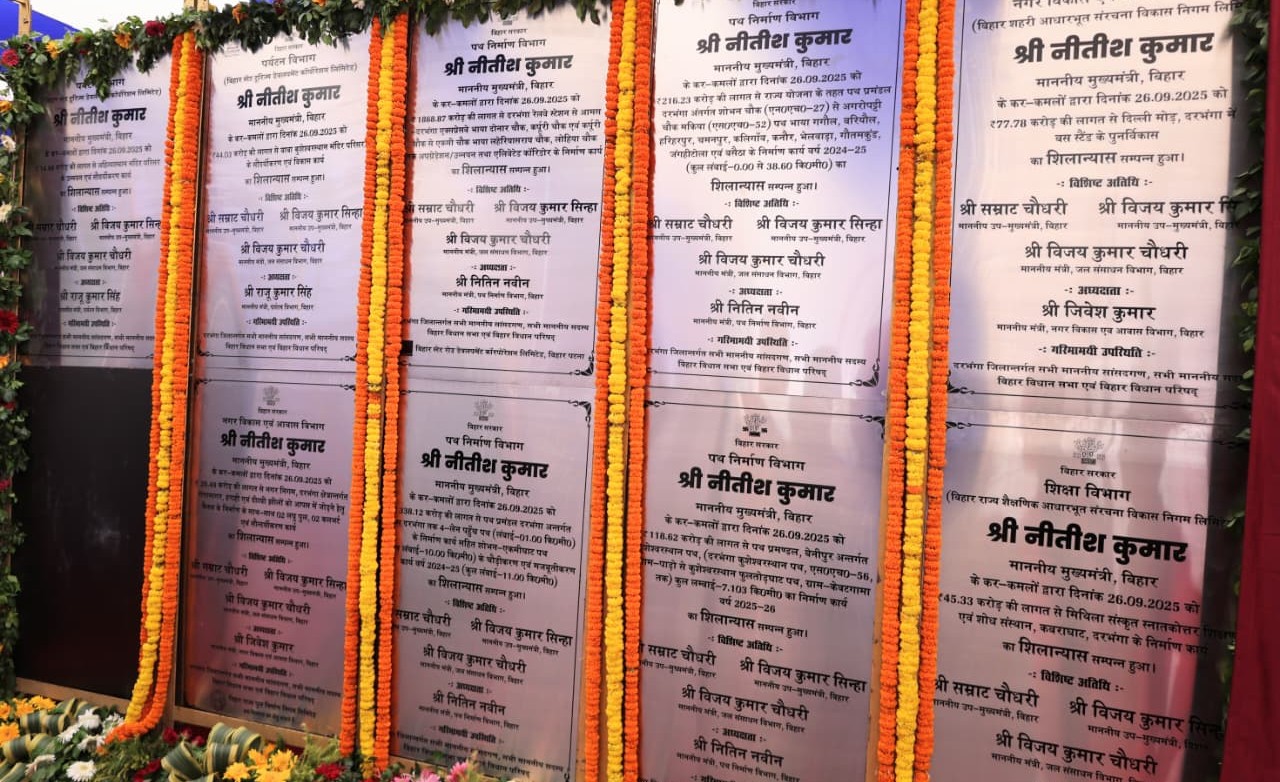 पर्यटन विभाग
श्री नीतीश कुमार
माननीय मुख्यमंत्री, बिहार
के कर-कमलों द्वारा दिनांक 26.09.2025 को
का शिलान्यास सम्पन्न हुआ।
-: विशिष्ट अतिथि :-
श्री विजय कुमार सिन्हा
श्री विजय कुमार चौधरी
माननीय मंत्री, जल संसाधन विभाग, बिहार
-: अध्यक्षता :-
श्री राजू कुमार सिंह
माननीय मंत्री, पर्यटन विभाग, बिहार
-: गरिमामयी उपस्थिति :-
बिहार सरकार
पर्यटन विभाग
(बिहार स्टेट टूरिज्म डेवलपमेंट कॉर्पोरेशन लिमिटेड)
श्री नीतीश कुमार
माननीय मुख्यमंत्री, बिहार
के कर-कमलों द्वारा दिनांक 26.09.2025 को
के सौंदर्यीकरण एवं विकास कार्य
का शिलान्यास सम्पन्न हुआ।
-: विशिष्ट अतिथि :-
श्री सम्राट चौधरी श्री विजय कुमार सिन्हा
माननीय उप-मुख्यमंत्री, बिहार माननीय उप-मुख्यमंत्री, बिहार
श्री विजय कुमार चौधरी
माननीय मंत्री, जल संसाधन विभाग, बिहार
-: अध्यक्षता :-
श्री राजू कुमार सिंह
माननीय मंत्री, पर्यटन विभाग, बिहार
-: गरिमामयी उपस्थिति :-
दरभंगा जिलान्तर्गत सभी माननीय सांसदगण, सभी माननीय सदस्य
बिहार विधान सभा एवं बिहार विधान परिषद्
बिहार सरकार
पथ निर्माण विभाग
श्री नीतीश कुमार
माननीय मुख्यमंत्री, बिहार
के कर-कमलों द्वारा दिनांक 26.09.2025 को
₹ 1868.87 करोड़ की लागत से दरभंगा रेलवे स्टेशन से आमस
दरभंगा एक्सप्रेसवे भाया दोनार चौक, कर्पूरी चौक एवं कर्पूरी
चौक से एकमी चौक भाया लहेरियासराय चौक, लोहिया चौक
का शिलान्यास सम्पन्न हुआ।
-: विशिष्ट अतिथि :-
श्री सम्राट चौधरी श्री विजय कुमार सिन्हा
माननीय उप-मुख्यमंत्री, बिहार माननीय उप-मुख्यमंत्री, बिहार
श्री विजय कुमार चौधरी
माननीय मंत्री, जल संसाधन विभाग, बिहार
-: अध्यक्षता :-
श्री नितिन नवीन
माननीय मंत्री, पथ निर्माण विभाग, बिहार
-: गरिमामयी उपस्थिति :-
दरभंगा जिलान्तर्गत सभी माननीय सांसदगण, सभी माननीय सदस्य
बिहार विधान सभा एवं बिहार विधान परिषद्
बिहार स्टेट रोड डेवलपमेंट कॉर्पोरेशन लिमिटेड, बिहार पटना
पथ निर्माण विभाग
श्री नीतीश कुमार
माननीय मुख्यमंत्री, बिहार
के कर-कमलों द्वारा दिनांक 26.09.2025 को
₹216.23 करोड़ की लागत से राज्य योजना के तहत पथ प्रमंडल
दरभंगा अंतर्गत शोभन चौक (एन०एच०-27) से अगरोपट्टी
चौक मकिया (एस०एच०-52) पथ भाया गंगौल, बरियौल,
हरिहरपुर, चमनपुर, कलिगाँव, कनौर, भेलवाड़ा, गौतमकुंड,
जंगहीटोला एवं ब्लैठा के निर्माण कार्य वर्ष 2024-25
(कुल लंबाई-0.00 से 38.60 कि०मी०) का
शिलान्यास सम्पन्न हुआ।
-: विशिष्ट अतिथि :-
श्री सम्राट चौधरी श्री विजय कुमार सिन्हा
माननीय उप-मुख्यमंत्री, बिहार माननीय उप-मुख्यमंत्री, बिहार
श्री विजय कुमार चौधरी
माननीय मंत्री, जल संसाधन विभाग, बिहार
-: अध्यक्षता :-
श्री नितिन नवीन
माननीय मंत्री, पथ निर्माण विभाग, बिहार
-: गरिमामयी उपस्थिति :-
दरभंगा जिलान्तर्गत सभी माननीय सांसदगण, सभी माननीय सदस्य
बिहार विधान सभा एवं बिहार विधान परिषद्
(बिहार शहरी आधारभूत संरचना विकास निगम
श्री नीतीश कुमार
माननीय मुख्यमंत्री, बिहार
के कर-कमलों द्वारा दिनांक 26.09.2025 को
₹77.78 करोड़ की लागत से दिल्ली मोड़, दरभंगा में
बस स्टैंड के पुनर्विकास
का शिलान्यास सम्पन्न हुआ।
-: विशिष्ट अतिथि :-
श्री सम्राट चौधरी श्री विजय कुमार
माननीय उप-मुख्यमंत्री, बिहार माननीय उप-मुख्यमंत्री, बिहार
श्री विजय कुमार चौधरी
माननीय मंत्री, जल संसाधन विभाग, बिहार
-: अध्यक्षता :-
श्री जिवेश कुमार
माननीय मंत्री, नगर विकास एवं आवास विभाग, बिहार
-: गरिमामयी उपस्थिति :-
दरभंगा जिलान्तर्गत सभी माननीय सांसदगण, सभी माननीय
बिहार विधान सभा एवं बिहार विधान परिषद्
बिहार सरकार
नगर विकास एवं आवास विभाग
श्री नीतीश कुमार
माननीय मुख्यमंत्री, बिहार
के कर-कमलों द्वारा दिनांक 26.09.2025 को
एवं सौन्दर्यीकरण कार्य
का शिलान्यास सम्पन्न हुआ।
-: विशिष्ट अतिथि :-
श्री सम्राट चौधरी श्री विजय कुमार सिन्हा
श्री विजय कुमार चौधरी
-: अध्यक्षता :-
श्री जिवेश कुमार
-: गरिमामयी उपस्थिति :-
बिहार सरकार
पथ निर्माण विभाग
श्री नीतीश कुमार
माननीय मुख्यमंत्री, बिहार
के कर-कमलों द्वारा दिनांक 26.09.2025 को
338.12 करोड़ की लागत से पथ प्रमंडल दरभंगा अन्तर्गत
दरभंगा तक 4-लेन पहुँच पथ (लंबाई-01.00 कि०मी०)
के निर्माण कार्य सहित शोभन-एकमीघाट पथ
(लंबाई-10.00 कि०मी०) के चौड़ीकरण एवं मजबूतीकरण
कार्य वर्ष 2024-25 (कुल लंबाई-11.00 कि०मी०)
का शिलान्यास सम्पन्न हुआ।
-: विशिष्ट अतिथि :-
सम्राट चौधरी श्री विजय कुमार सिन्हा
उप-मुख्यमंत्री, बिहार माननीय उप-मुख्यमंत्री, बिहार
श्री विजय कुमार चौधरी
माननीय मंत्री, जल संसाधन विभाग, बिहार
-: अध्यक्षता :-
श्री नितिन नवीन
माननीय मंत्री, पथ निर्माण विभाग, बिहार
-: गरिमामयी उपस्थिति :-
बिहार सरकार
पथ निर्माण विभाग
श्री नीतीश कुमार
माननीय मुख्यमंत्री, बिहार
के कर-कमलों द्वारा दिनांक 26.09.2025 को
₹118.62 करोड़ की लागत से पथ प्रमण्डल, बेनीपुर अन्तर्गत
कुशेश्वरस्थान पथ, (दरभंगा कुशेश्वरस्थान पथ, एस०एच०-56,
ग्राम-पाड़ो से कुशेश्वरस्थान फुलतोड़ाघाट पथ, ग्राम-केवटगामा
तक) कुल लम्बाई-7.103 कि०मी० का निर्माण कार्य
वर्ष 2025-26
का शिलान्यास सम्पन्न हुआ।
-: विशिष्ट अतिथि :-
सम्राट चौधरी श्री विजय कुमार सिन्हा
उप-मुख्यमंत्री, बिहार माननीय उप-मुख्यमंत्री, बिहार
श्री विजय कुमार चौधरी
माननीय मंत्री, जल संसाधन विभाग, बिहार
-: अध्यक्षता :-
श्री नितिन नवीन
माननीय मंत्री, पथ निर्माण विभाग, बिहार
बिहार सरकार
शिक्षा विभाग
(बिहार राज्य शैक्षणिक आधारभूत संरचना विकास निगम
श्री नीतीश कुमार
माननीय मुख्यमंत्री, बिहार
के कर-कमलों द्वारा दिनांक 26.09.2025 को
₹45.33 करोड़ की लागत से मिथिला संस्कृत स्नातकोत्तर शिक्षण
एवं शोध संस्थान, कबराघाट, दरभंगा के निर्माण कार्य
का शिलान्यास सम्पन्न हुआ।
-: विशिष्ट अतिथि :-
श्री सम्राट चौधरी श्री विजय कुमार
माननीय उप-मुख्यमंत्री, बिहार माननीय उप-मुख्यमंत्री, बिहार
श्री विजय कुमार चौधरी